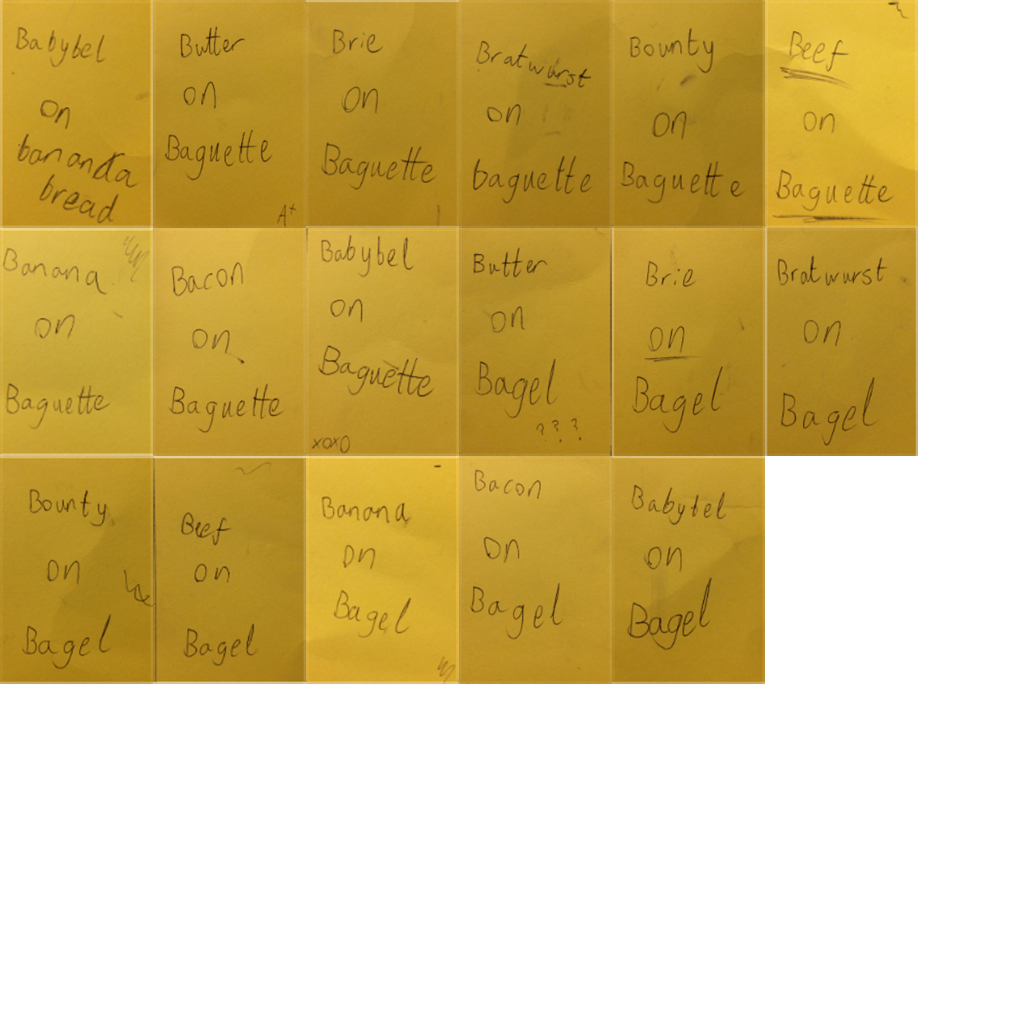 Babybel
on
bananda
bread
Butter
on
Baguette
A+
Brie
on
Baguette
Bratwurst
on
baguette
Bounty
on
Baguette
Beef
on
Baguette
Banana
on
Baguette
Bacon
on
Baguette
Babybel
on
Baguette
xoxo
Butter
on
Bagel
???
Brie
on
Bagel
Bratwurst
on
Bagel
Bounty
on
Bagel
Beef
on
Bagel
Banana
on
Bagel
Bacon
on
Bagel
Babybel
on
Bagel